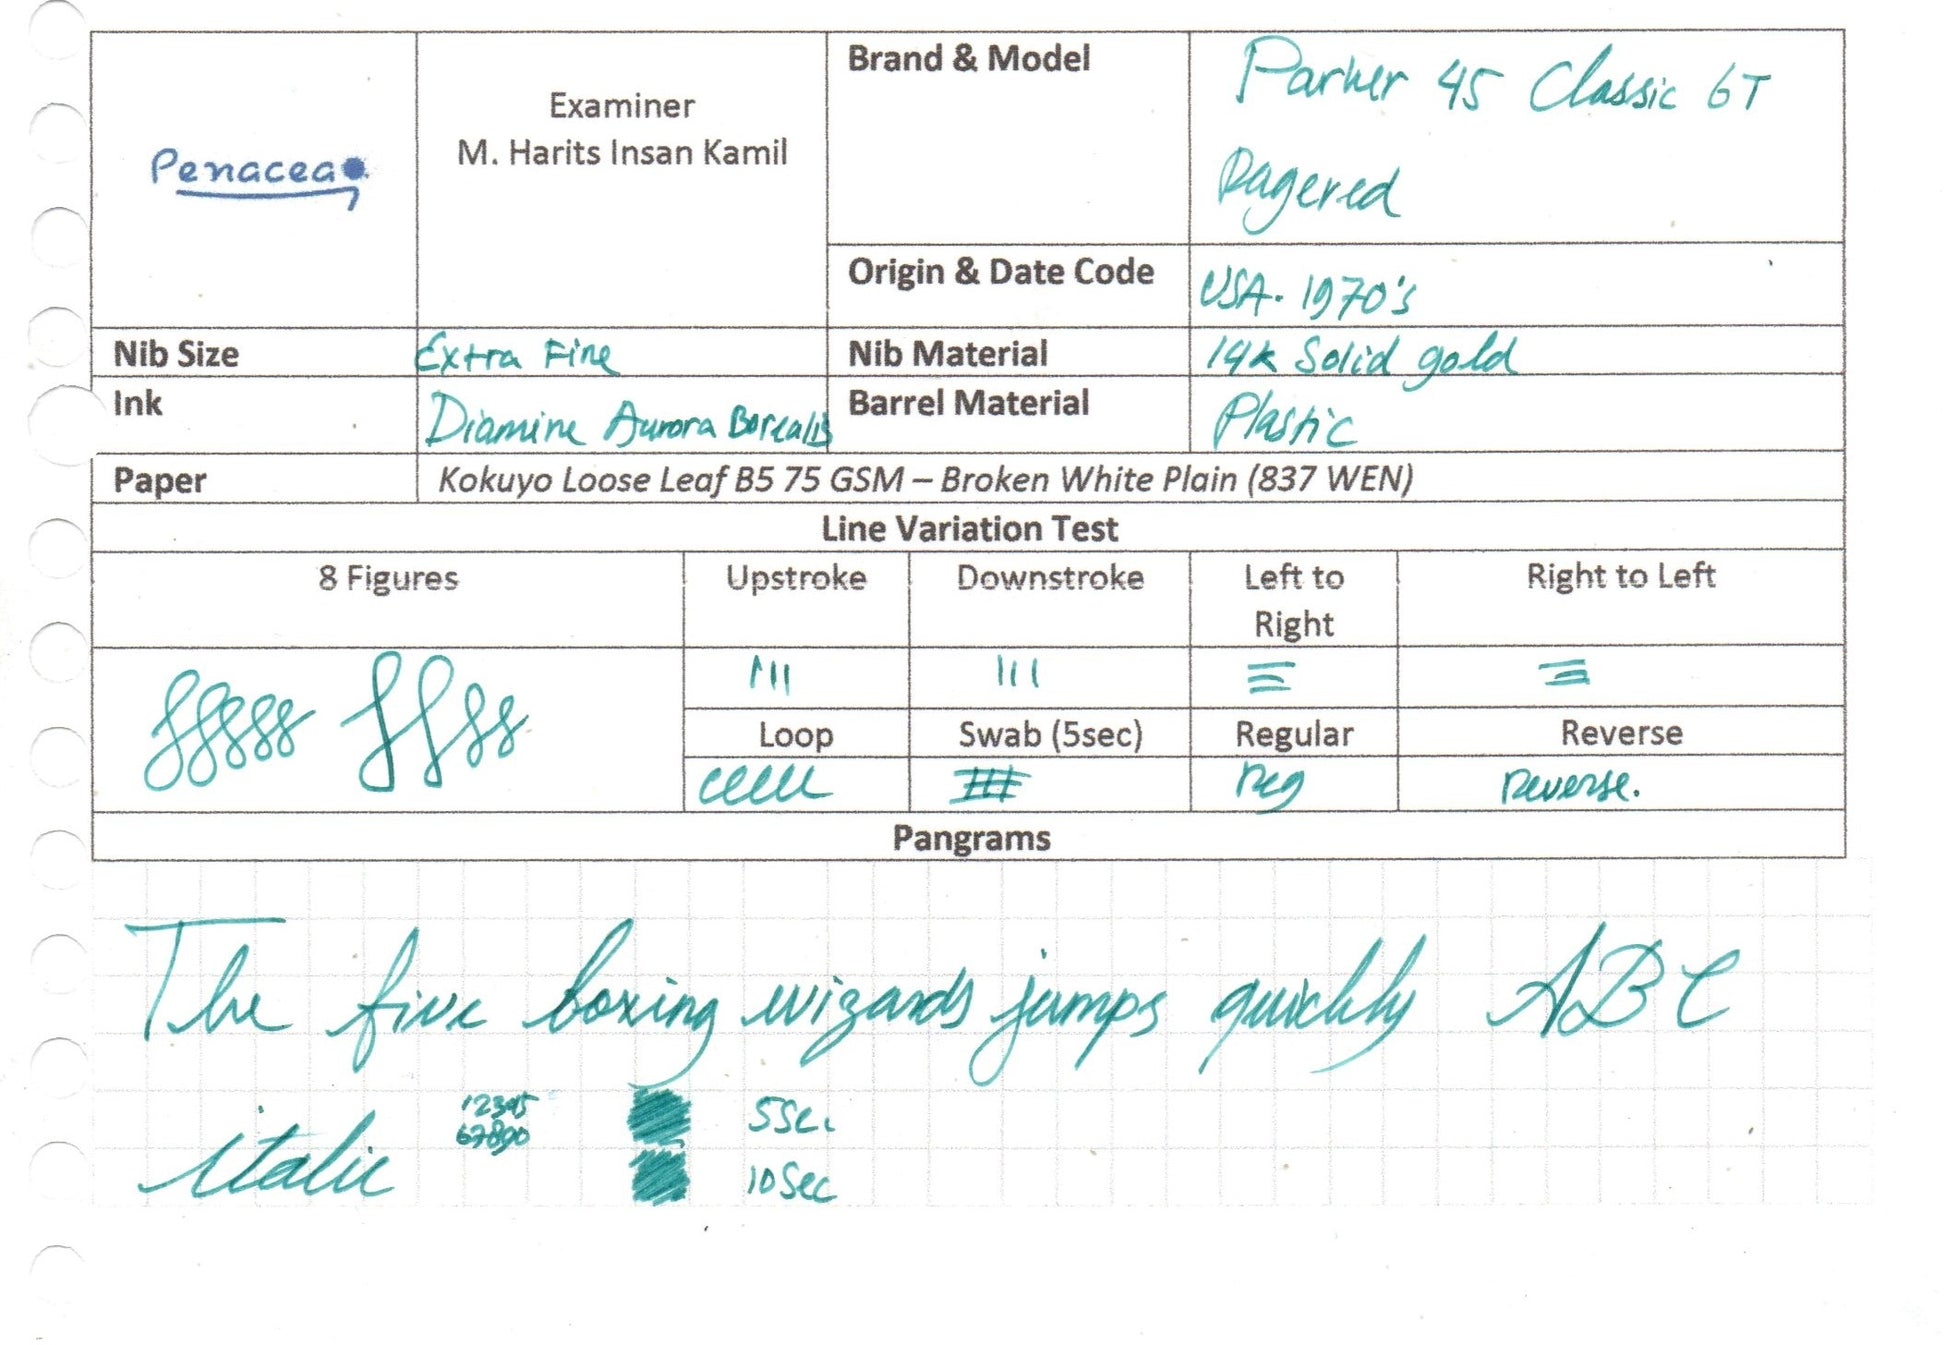 Penacea
Examiner
M. Harits Insan Kamil
Brand & Model
Parker 45 Classic GT
Dagered
Origin & Date Code
USA. 1970's
Nib Size
Extra Fine
Nib Material
14k Solid gold
Ink
Diamine Aurora Borealis
Barrel Material
Plastic
Paper
Kokuyo Loose Leaf B5 75 GSM – Broken White Plain (837 WEN)
Line Variation Test
8 Figures
Upstroke
Downstroke
Left to
Right
Right to Left
Loop
Swab (5sec)
Regular
Reverse
Reg
Reverse.
Pangrams
The five boxing wizards jumps quickly ABC
italic
12345
67890
5Sec.
10Sec